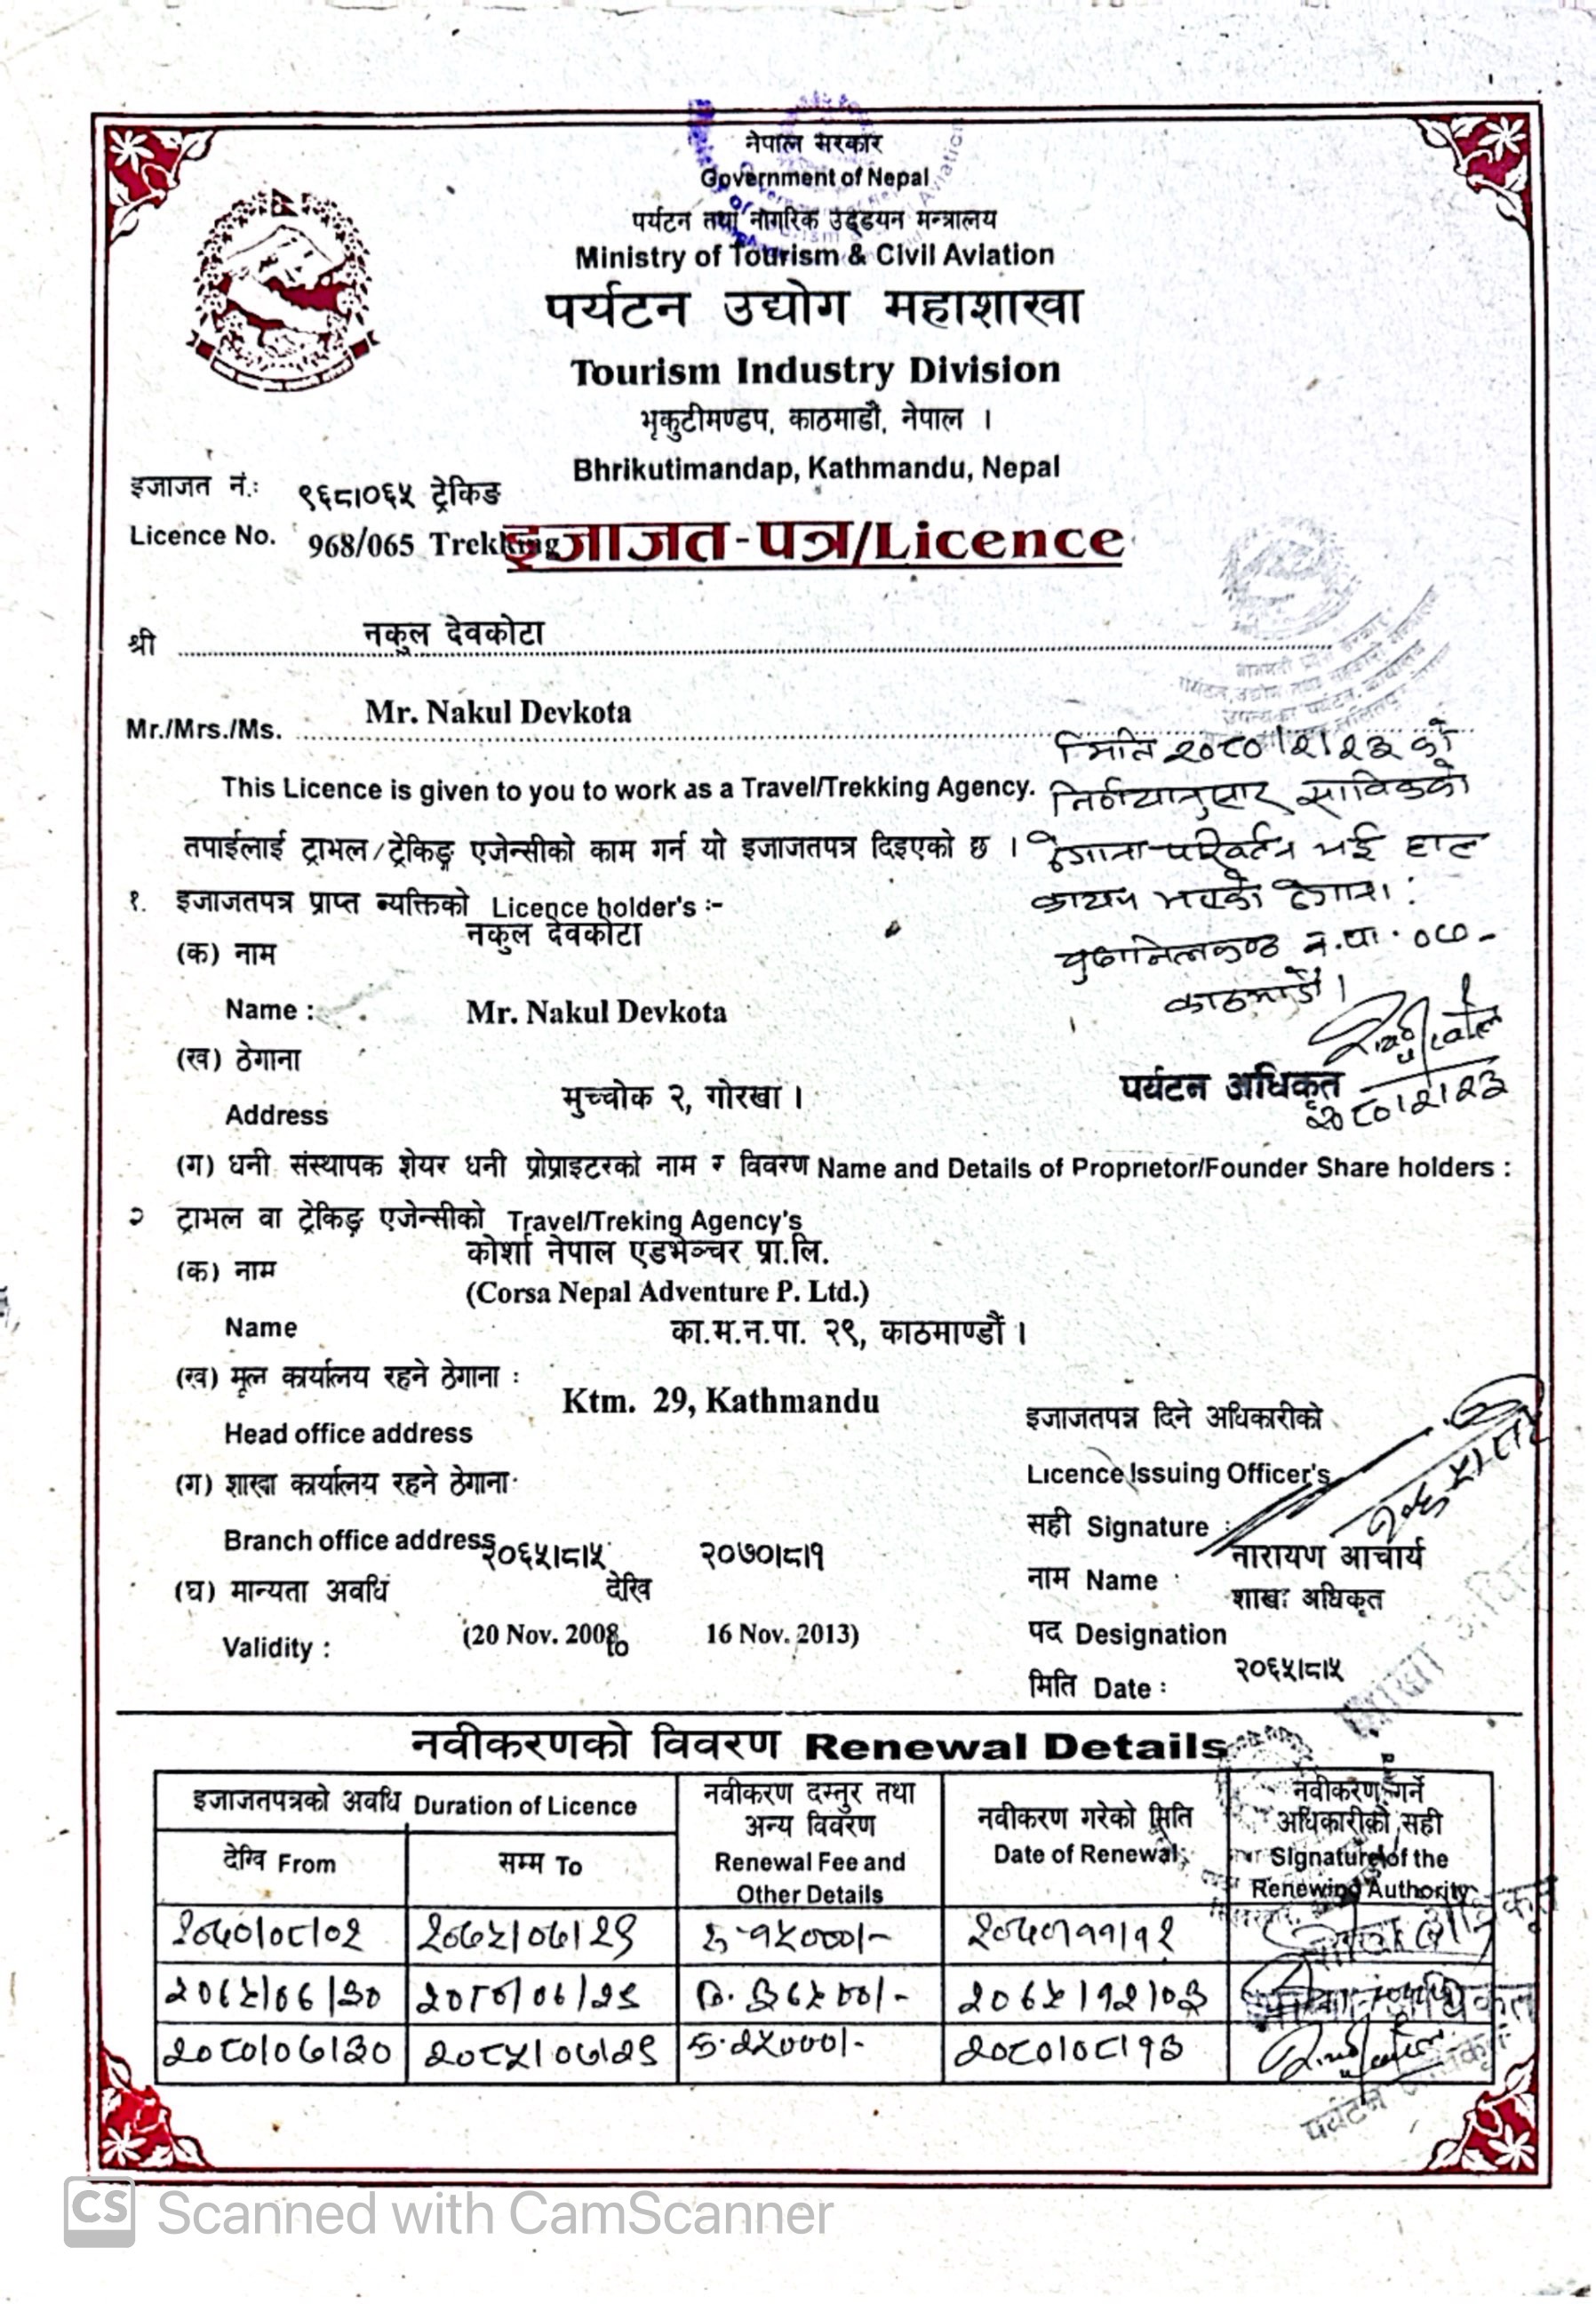 नेपाल सरकार
Government of Nepal
पर्यटन तथा नागरिक उड्डयन मन्त्रालय
Ministry of Tourism & Civil Aviation
पर्यटन उद्योग महाशाखा
Tourism Industry Division
भृकुटीमण्डप, काठमाडौं, नेपाल ।
Bhrikutimandap, Kathmandu, Nepal
इजाजत नं.: ९६८।०६५ ट्रेकिङ
Licence No. 968/065 Trekking
इजाजत-पत्र/Licence
श्री नकुल देवकोटा
Mr./Mrs./Ms. Mr. Nakul Devkota
मिति २०८०।२।२३ को
This Licence is given to you to work as a Travel/Trekking Agency.
निर्णयानुसार साविकको
तपाईलाई ट्राभल/ट्रेकिङ्ग एजेन्सीको काम गर्न यो इजाजतपत्र दिइएको छ ।
ठेगाना परिवर्तन भई हाल
कायम भएको ठेगाना:
१. इजाजतपत्र प्राप्त व्यक्तिको Licence holder's :-
(क) नाम नकुल देवकोटा
बुढानिलकण्ठ न.पा. ०७-
काठमाडौं।
Name : Mr. Nakul Devkota
(ख) ठेगाना
Address मुच्चोक २, गोरखा ।
पर्यटन अधिकृत
२०८०।२।२३
(ग) धनी संस्थापक शेयर धनी प्रोप्राइटरको नाम र विवरण Name and Details of Proprietor/Founder Share holders :
२ ट्राभल वा ट्रेकिङ्ग एजेन्सीको Travel/Treking Agency's
(क) नाम कोर्शा नेपाल एडभेञ्चर प्रा.लि.
(Corsa Nepal Adventure P. Ltd.)
Name
का.म.न.पा. २९, काठमाण्डौं ।
(ख) मूल कार्यालय रहने ठेगाना :
Head office address Ktm. 29, Kathmandu
(ग) शाखा कार्यालय रहने ठेगाना
Branch office address
(घ) मान्यता अवधि २०६५।८।५ देखि २०७०।८।१
Validity : (20 Nov. 2008 to 16 Nov. 2013)
इजाजतपत्र दिने अधिकारीको
Licence Issuing Officer's
सही Signature :
नाम Name : नारायण आचार्य
शाखा अधिकृत
पद Designation
मिति Date : २०६५।८।५
नवीकरणको विवरण Renewal Details
इजाजतपत्रको अवधि Duration of Licence
देखि From
सम्म To
नवीकरण दस्तुर तथा
अन्य विवरण
Renewal Fee and
Other Details
नवीकरण गरेको मिति
Date of Renewal
नवीकरण गर्ने
अधिकारीको सही
Signature of the
Renewing Authority
२०७०/०८/०२ २०७५/०७/२९ रु १५०००/-
२०७५/०७/३० २०८०/०७/२९
२०८०/०७/३० २०८५/०७/२९ रु. २५०००/- २०८०/०८/१३
पर्यटन अधिकृत
CS Scanned with CamScanner